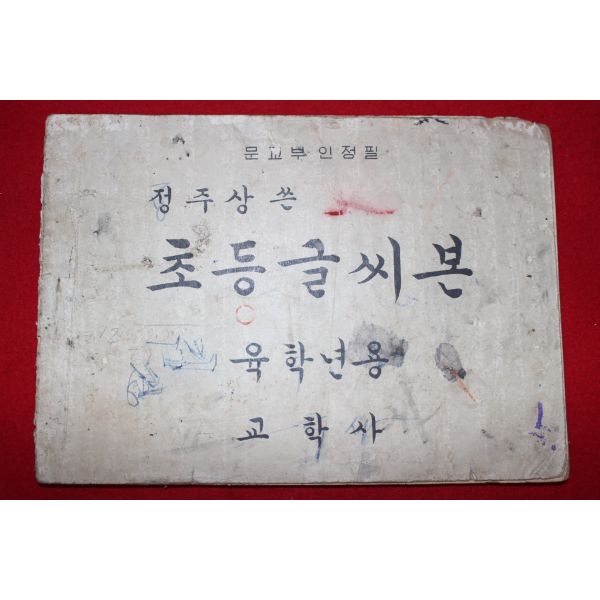 문교부인정필
정주상 쓴
초등글씨본
육학년용
교학사